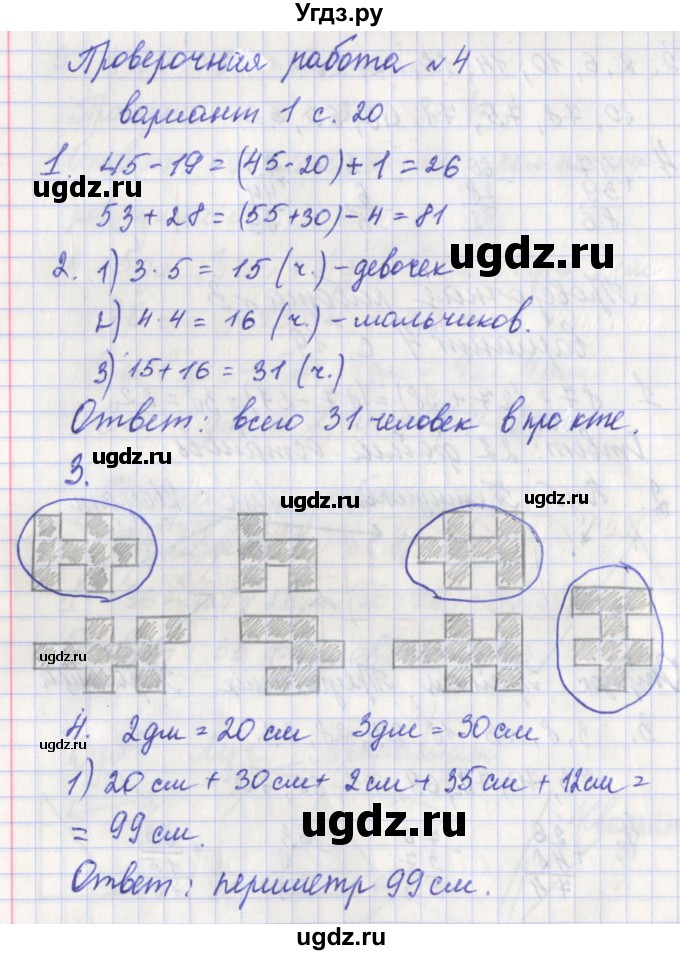 Угдз.ру
Проверочная работа №4
вариант 1 с. 20
1. 45-19 = (45-20)+1 = 26
ugdz.ru
53+28 = (55+30)-4 = 81
2. 1) 3·5 = 15 (ч.) - девочек
ugdz.ru
2) 4·4 = 16 (ч.) - мальчиков.
ugdz.ru
3) 15+16 = 31 (ч.)
Ответ: всего 31 человек в пректе.
3. ugdz.ru
ugdz.ru
ugdz.ru
4. 2дм = 20см 3дм = 30см
ugdz.ru
1) 20см + 30см + 2см + 35см + 12см =
= 99см.
ugdz.ru
Ответ: периметр 99см.
ugdz.ru
ugdz.ru